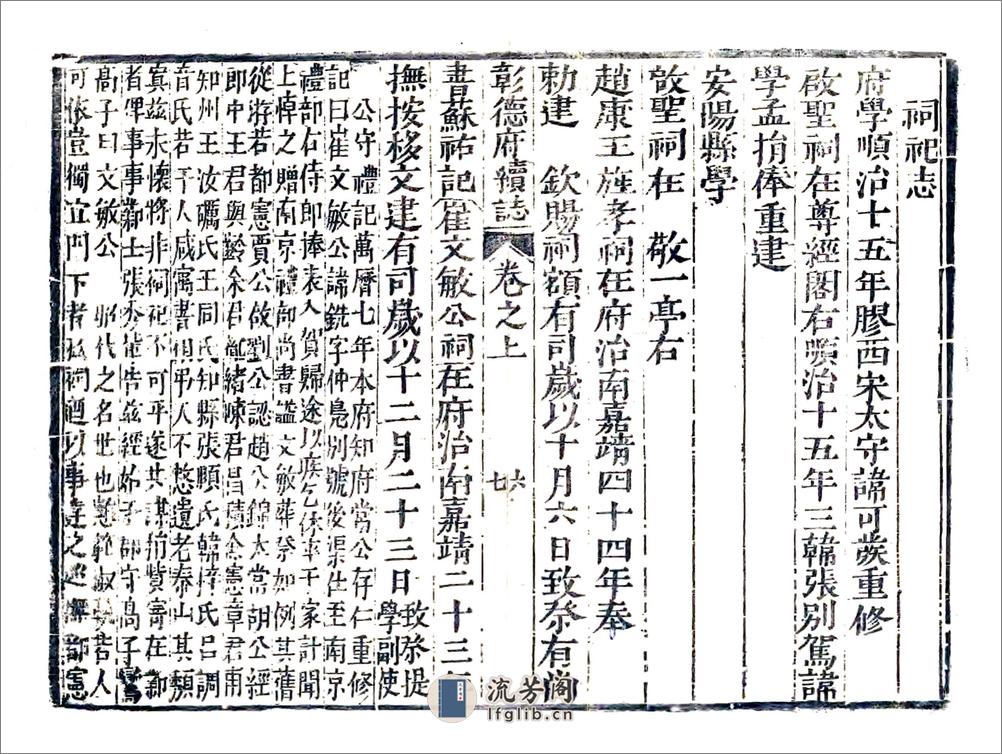 祠祀志
府學順治十五年膠西宋太守諱可發重修
啟聖祠在尊經閣右順治十五年三韓張別駕諱
學孟捐俸重建
安陽縣學
啟聖祠在 敬一亭右
趙康王旌孝祠在府治南嘉靖四十四年奉
勅建 欽賜祠額有司歲以十月六日致祭有尚
彰德府續誌 卷之上 六七
書蘇祐記崔文敏公祠在府治南嘉靖二十三
撫按移文建有司歲以十二月二十三日致祭提
學副使
公守禮記萬曆七年本府知府常公存仁重修
記曰崔文敏公諱銑字仲鳧別號後渠仕至南京
禮部右侍郎捧表入賀歸途以疾乞休卒于家訃聞
上悼之贈南京禮部尚書謚文敏葬祭如例其舊
從游若都憲賈公啟劉公認趙公錦太常胡公經
郎中王君與齡余君胤緒陳君昌積僉憲章君甫
知州王汝礪氏王同氏知縣張順氏韓梓氏呂調
音氏若干人咸寓書相弔人不憗遺老泰山其頹
寘茲永懷將非祠祀不可乎遂共謀捐貲寄在鄴
者俾事事鄴士張 告茲經始于郡守高子
高子曰文敏公 昭代之名世也懿範淑 吾人
可依豈獨立門下者私祠 以事 之 憲
流芳阁
lfglib.cn